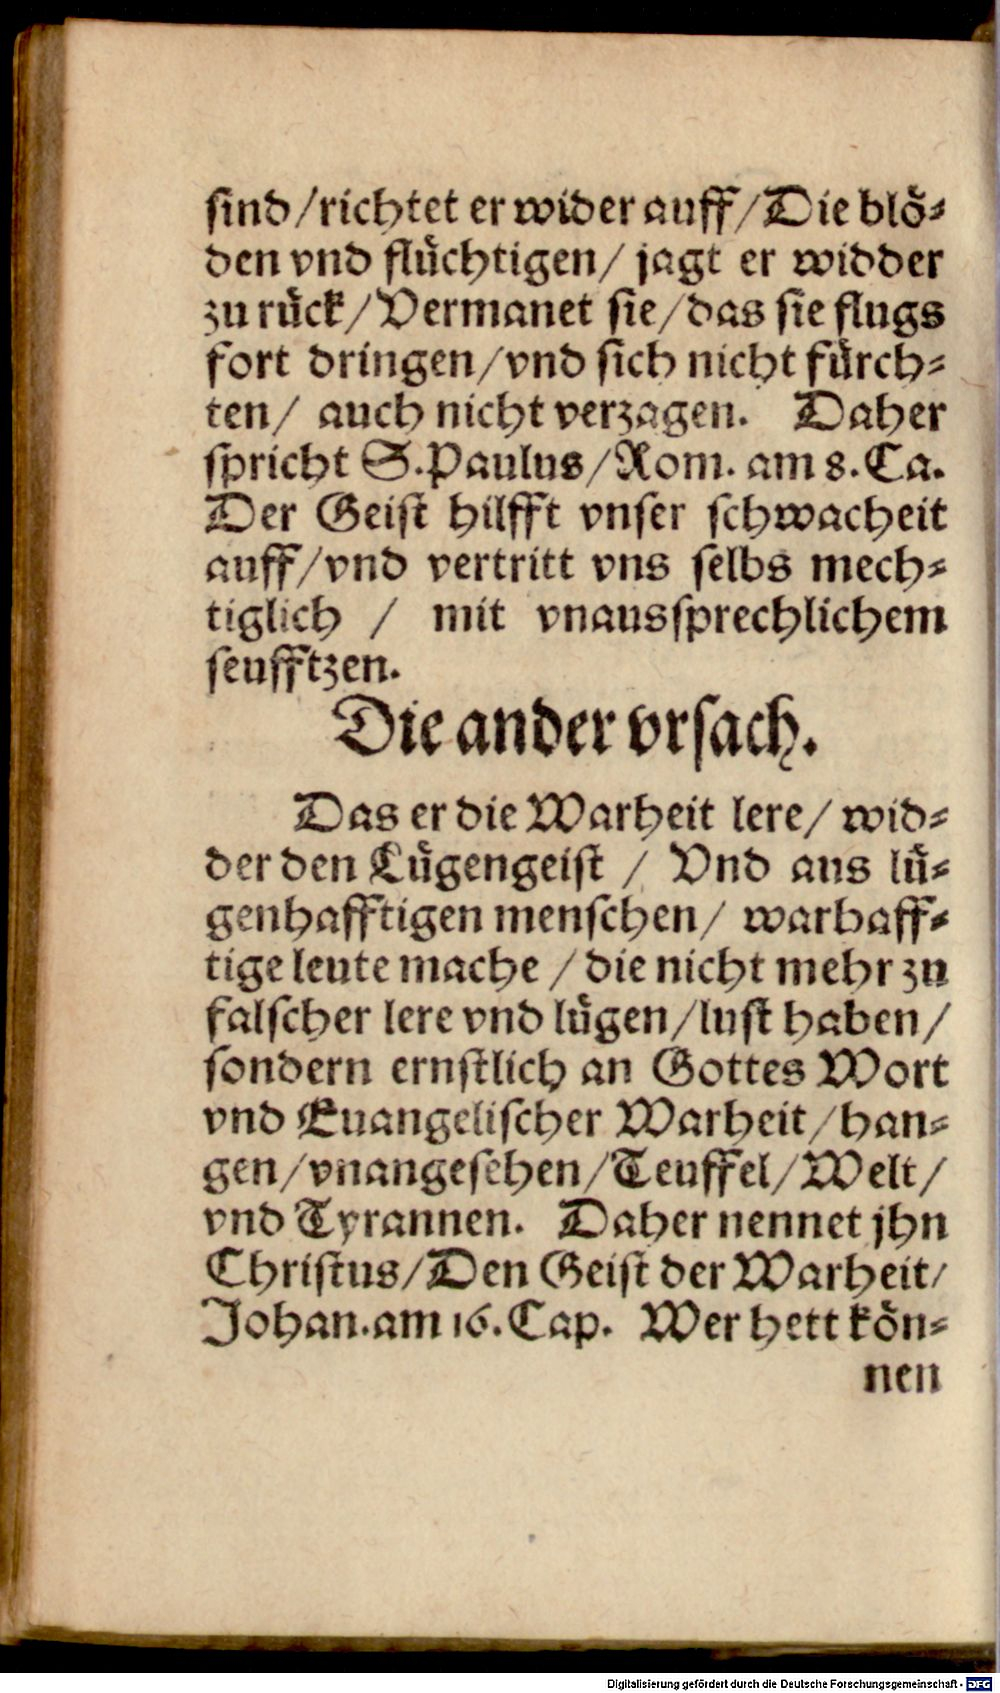 ſind/richtet er wider auff/Die bloͤ⸗
den vnd fluͤchtigen/ jagt er widder
zu ruͤck/Vermanet ſie/das ſie flugs
fort dringen/vnd ſich nicht fuͤrch⸗
ten/ auch nicht verzagen. Daher
ſpricht S.Paulus/Rom. am 8.Ca.
Der Geiſt hilfft vnſer ſchwacheit
auff/vnd vertritt vns ſelbs mech⸗
tiglich / mit vnausſprechlichem
ſeufftzen.
Die ander vrſach.
Das er die Warheit lere/ wid⸗
der den Luͤgengeiſt / Vnd aus luͤ⸗
genhafftigen menſchen/ warhaff⸗
tige leute mache /die nicht mehr zu
falſcher lere vnd luͤgen/luſt haben/
ſondern ernſtlich an Gottes Wort
vnd Euangeliſcher Warheit/han⸗
gen/vnangeſehen/Teuffel/Welt/
vnd Tyrannen. Daher nennet jhn
Chriſtus/Den Geiſt der Warheit/
Johan.am 16.Cap. Wer hett koͤn⸗
nen
Digitalisierung gefördert durch die Deutsche Forschungsgemeinschaft - DFG